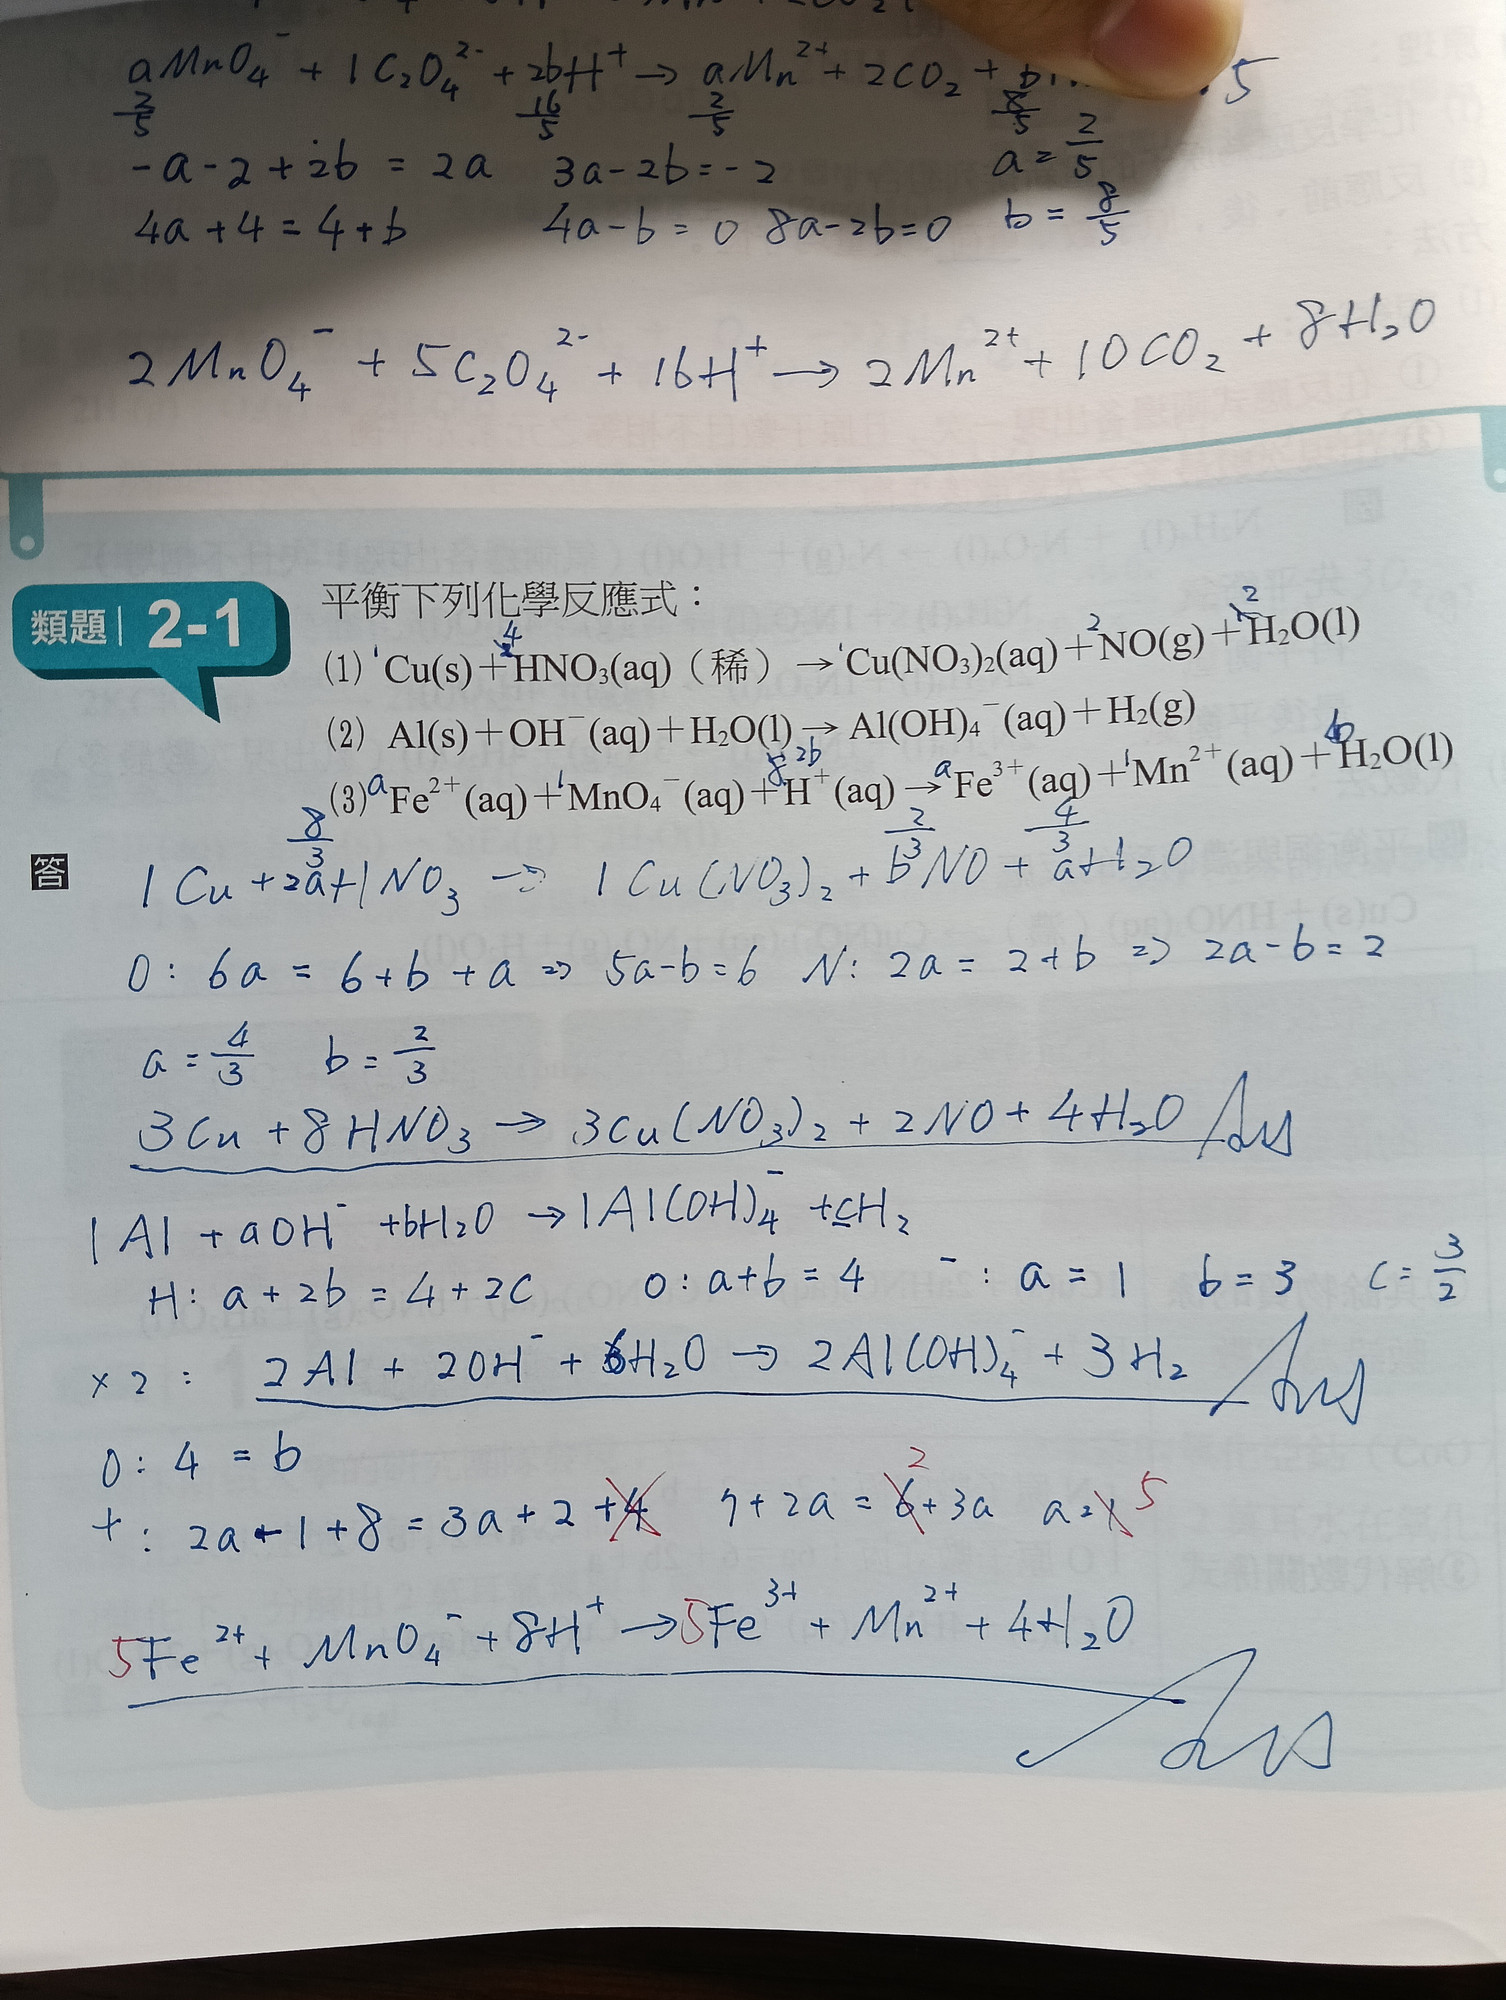 aMnO₄⁻ + 1C₂O₄²⁻ + 2bH⁺ → aMn²⁺ + 2CO₂ + b
2/5 16/5 2/5 8/5 5
-a-2+2b = 2a 3a-2b=-2 a = 2/5
4a+4=4+b 4a-b=0 8a-2b=0 b = 8/5
2MnO₄⁻ + 5C₂O₄²⁻ + 16H⁺ → 2Mn²⁺ + 10CO₂ + 8H₂O
類題 2-1
平衡下列化學反應式：
(1) 1Cu(s)+4HNO₃(aq)（稀）→1Cu(NO₃)₂(aq)+2NO(g)+2H₂O(l)
(2) Al(s)+OH⁻(aq)+H₂O(l)→Al(OH)₄⁻(aq)+H₂(g)
(3) aFe²⁺(aq)+1MnO₄⁻(aq)+8 2bH⁺(aq)→aFe³⁺(aq)+1Mn²⁺(aq)+bH₂O(l)
8/3 2/3 4/3
答
1Cu + 2aHNO₃ → 1Cu(NO₃)₂ + bNO + aH₂O
O: 6a = 6+b+a ⇒ 5a-b=6 N: 2a = 2+b ⇒ 2a-b=2
a = 4/3 b = 2/3
3Cu + 8HNO₃ → 3Cu(NO₃)₂ + 2NO + 4H₂O Ans
1Al + aOH⁻ + bH₂O → 1Al(OH)₄⁻ + cH₂
H: a+2b = 4+2c O: a+b = 4 -: a = 1 b = 3 c = 3/2
×2: 2Al + 2OH⁻ + 6H₂O → 2Al(OH)₄⁻ + 3H₂ Ans
O: 4 = b
+: 2a-1+8 = 3a+2+4 7+2a = 6 2+3a a=1 5
5Fe²⁺ + MnO₄⁻ + 8H⁺ → 5Fe³⁺ + Mn²⁺ + 4H₂O
Ans